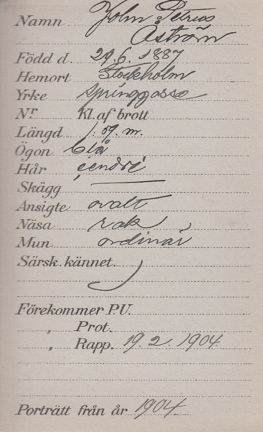 Namn John Petrus
Åström
Född d. 29/6. 1887
Hemort Stockholm
Yrke Springgosse
Nr Kl. af brott
Längd 1,
Ögon blå
Hår cendré
Skägg
Ansigte ovalt
Näsa rak
Mun ordinär
Särsk. kännet.
Förekommer PU.
„ Prot.
„ Rapp. 19.2.1904
Porträtt från år 1904.